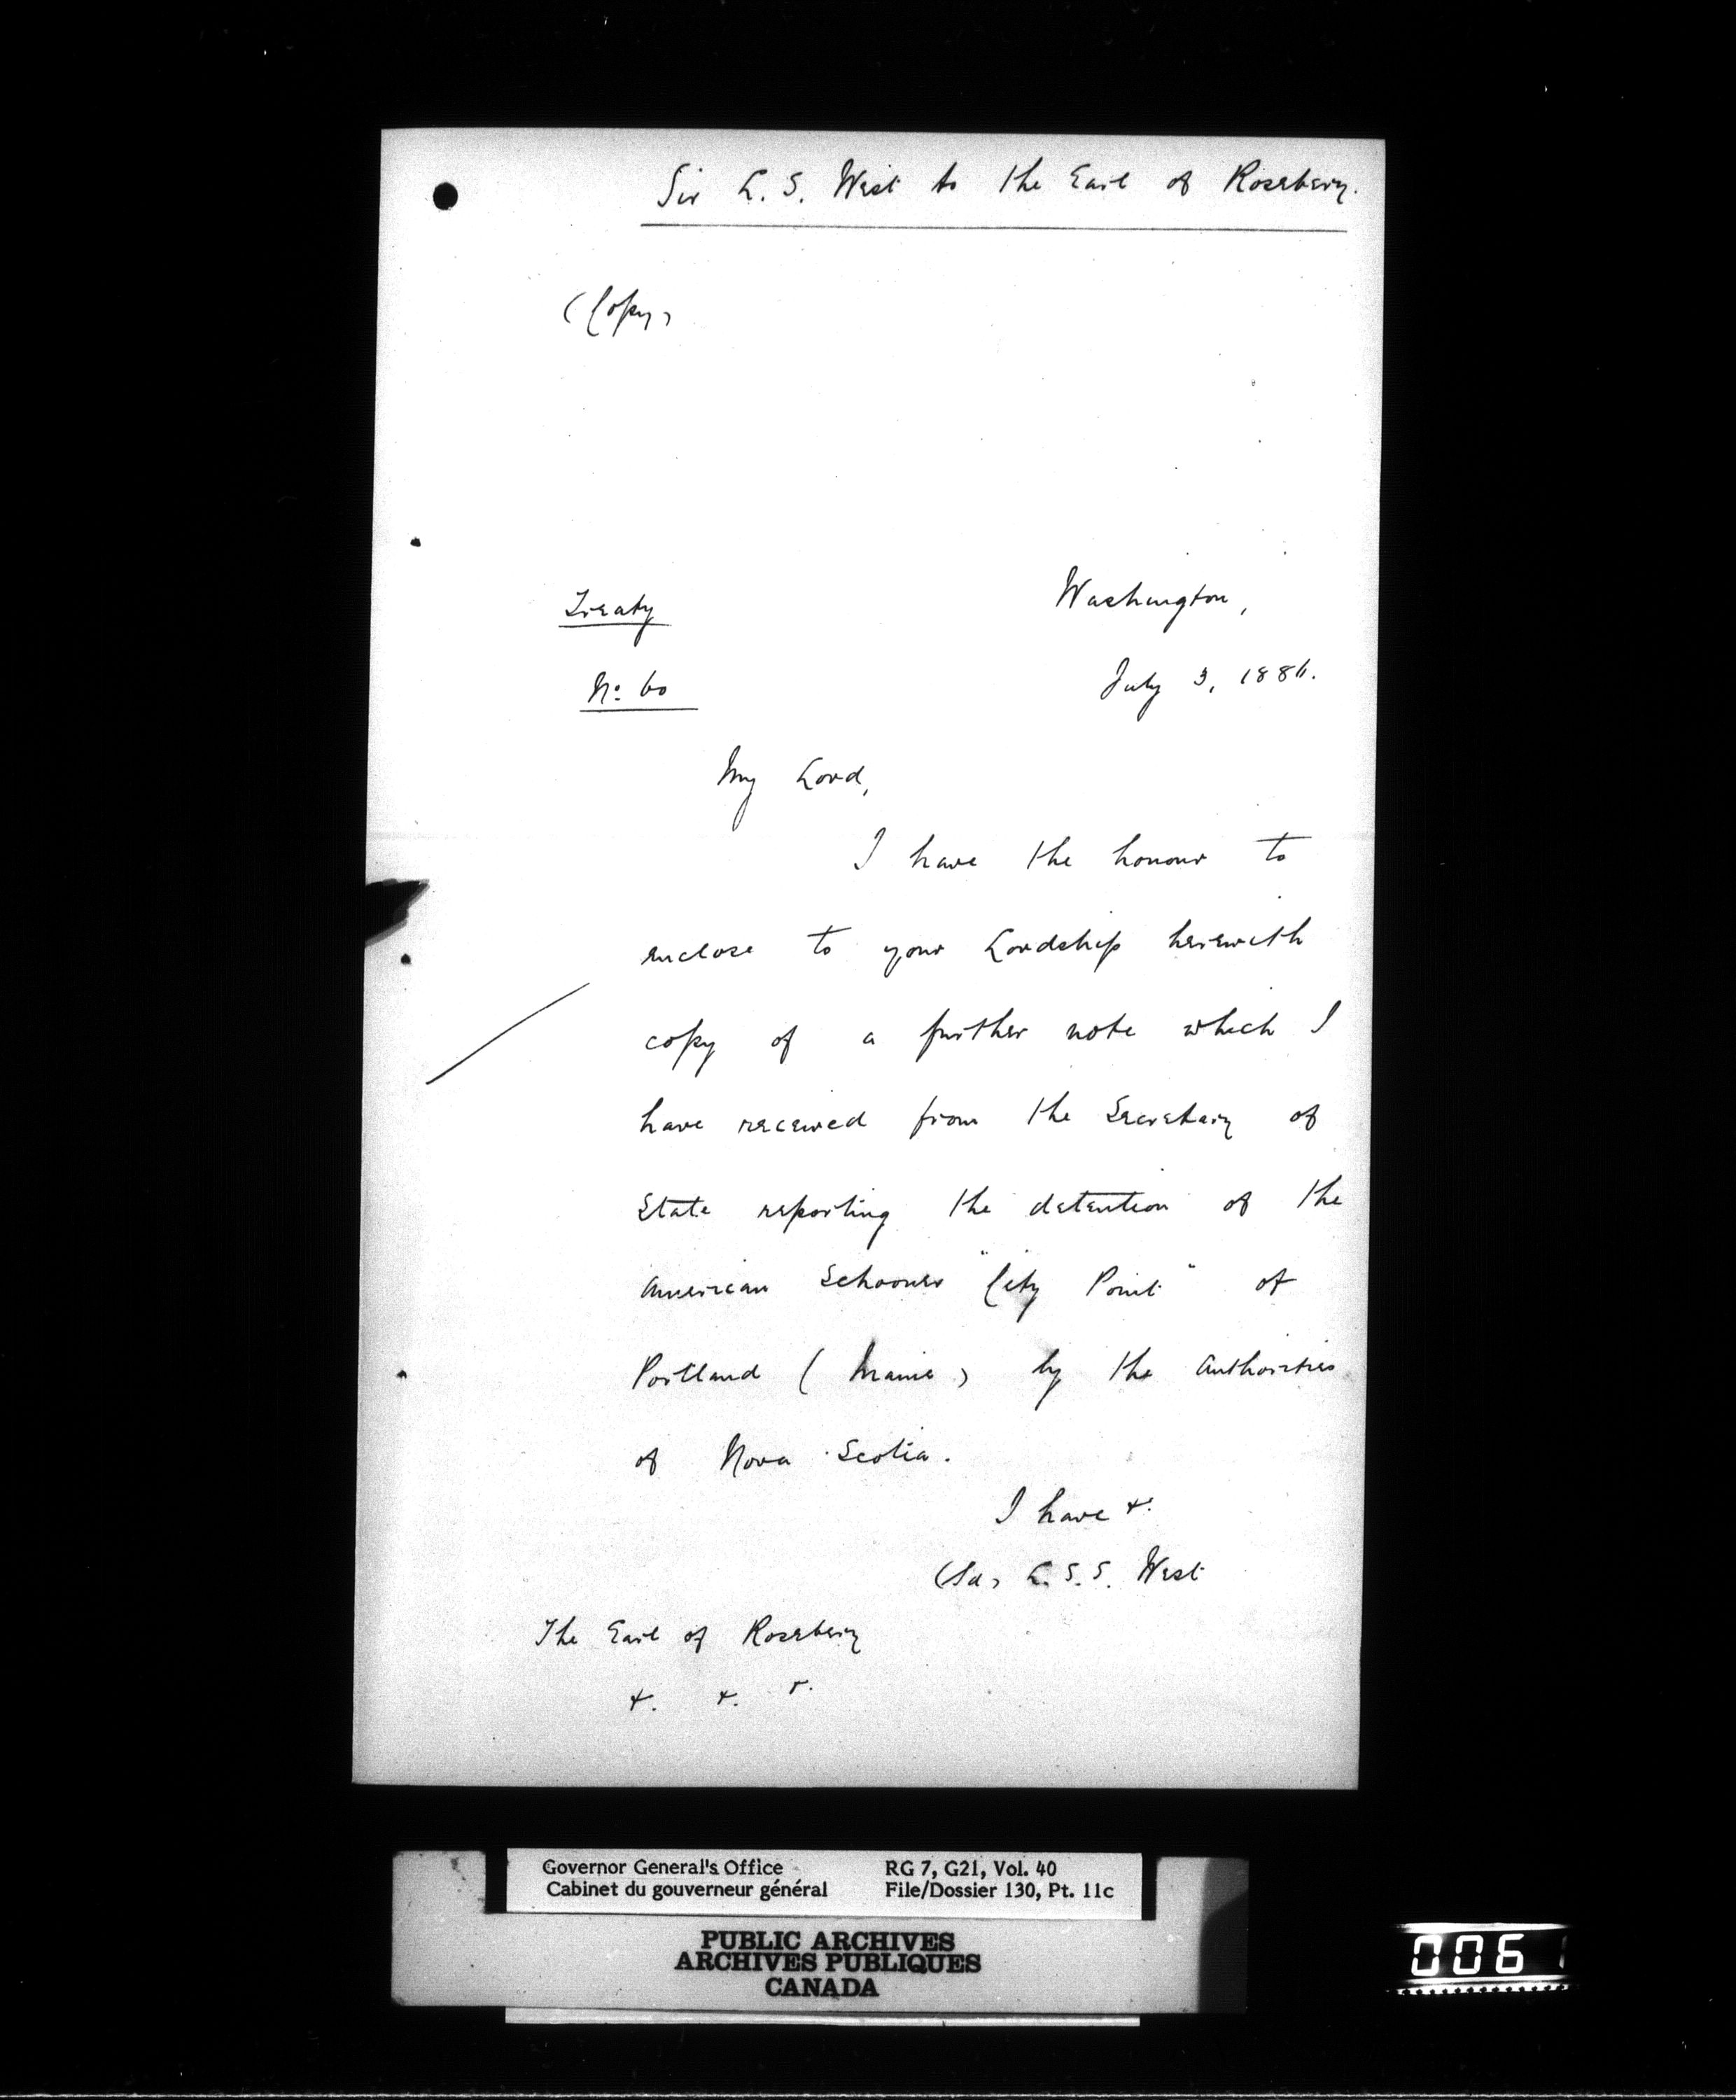 Sir L. S. West to the Earl of Rosebery.
(Copy)
Treaty
Washington,
No. 60
July 3, 1886.
My Lord,
I have the honour to
enclose to your Lordship herewith
copy of a further note which I
have received from the Secretary of
State reporting the detention of the
American Schooner "City Point" of
Portland (Maine) by the Authorities
of Nova Scotia.
I have &.
(Sd) L. S. S. West
The Earl of Rosebery
&. &. &.
Governor General's Office
Cabinet du gouverneur général
RG 7, G21, Vol. 40
File/Dossier 130, Pt. 11c
PUBLIC ARCHIVES
ARCHIVES PUBLIQUES
CANADA
006